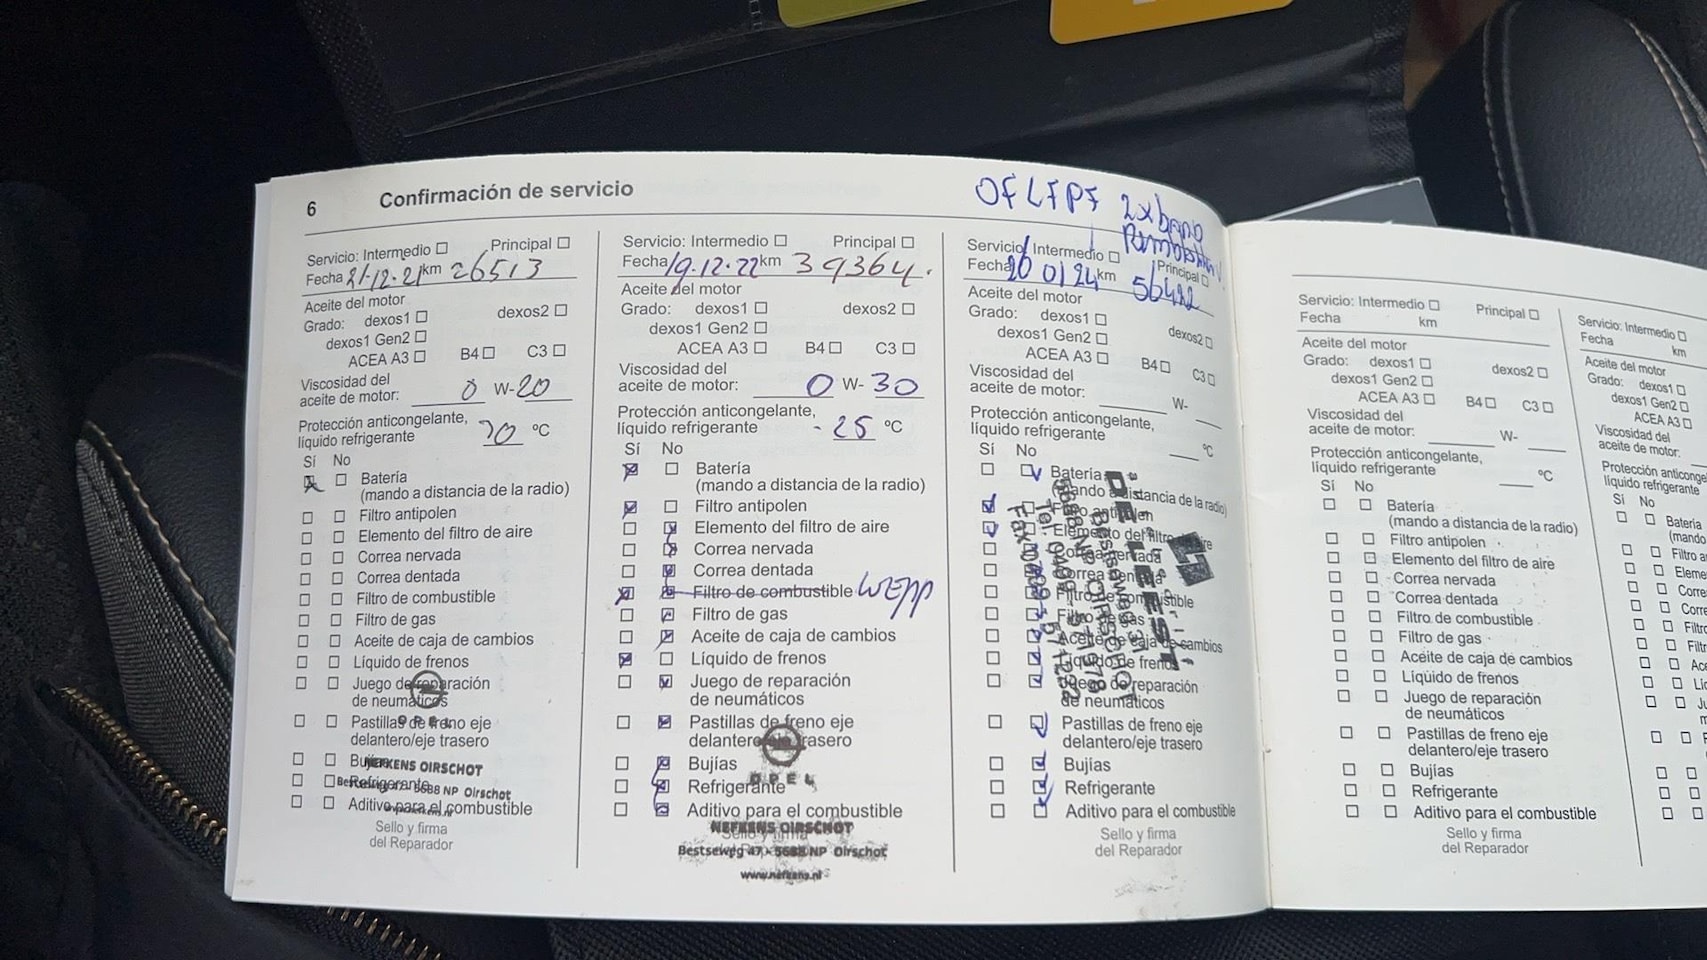 6 Confirmación de servicio
2x
Servicio: Intermedio Principal
Fecha 21-12-21 km 26513
Aceite del motor
Grado: dexos1 dexos2
dexos1 Gen2
ACEA A3 B4 C3
Viscosidad del
aceite de motor: 0 W-20
Protección anticongelante,
líquido refrigerante ºC
Sí No
Batería
(mando a distancia de la radio)
Filtro antipolen
Elemento del filtro de aire
Correa nervada
Correa dentada
Filtro de combustible
Filtro de gas
Aceite de caja de cambios
Líquido de frenos
Juego de reparación
de neumáticos
OPEL
Pastillas de freno eje
delantero/eje trasero
Bujías
NEFKENS OIRSCHOT
Refrigerante
Bestseweg 47 - 5688 NP Oirschot
www.nefkens.nl
Aditivo para el combustible
Sello y firma
del Reparador
Servicio: Intermedio Principal
Fecha 19-12-22 km 39364.
Aceite del motor
Grado: dexos1 dexos2
dexos1 Gen2
ACEA A3 B4 C3
Viscosidad del
aceite de motor: 0 W-30
Protección anticongelante,
líquido refrigerante -25 ºC
Sí No
Batería
(mando a distancia de la radio)
Filtro antipolen
Elemento del filtro de aire
Correa nervada
Correa dentada
Filtro de combustible
Filtro de gas
Aceite de caja de cambios
Líquido de frenos
Juego de reparación
de neumáticos
Pastillas de freno eje
delantero/eje trasero
Bujías
OPEL
Refrigerante
Aditivo para el combustible
NEFKENS OIRSCHOT
Sello y firma
Bestseweg 47 - 5688 NP Oirschot
www.nefkens.nl
Servicio: Intermedio Principal
Fecha km
Aceite del motor
Grado: dexos1 dexos2
dexos1 Gen2
ACEA A3 B4 C3
Viscosidad del
aceite de motor: W-
Protección anticongelante,
líquido refrigerante ºC
Sí No
Batería
(mando a distancia de la radio)
Filtro antipolen
Elemento del filtro de aire
Correa dentada
Filtro de combustible
Filtro de gas
Aceite de caja de cambios
Líquido de frenos
Juego de reparación
de neumáticos
Pastillas de freno eje
delantero/eje trasero
Bujías
Refrigerante
Aditivo para el combustible
Sello y firma
del Reparador
Servicio: Intermedio Principal
Fecha km
Aceite del motor
Grado: dexos1 dexos2
dexos1 Gen2
ACEA A3 B4 C3
Viscosidad del
aceite de motor: W-
Protección anticongelante,
líquido refrigerante ºC
Sí No
Batería
(mando a distancia de la radio)
Filtro antipolen
Elemento del filtro de aire
Correa nervada
Correa dentada
Filtro de combustible
Filtro de gas
Aceite de caja de cambios
Líquido de frenos
Juego de reparación
de neumáticos
Pastillas de freno eje
delantero/eje trasero
Bujías
Refrigerante
Aditivo para el combustible
Sello y firma
del Reparador
Servicio: Intermedio
Fecha km
Aceite del motor
Grado: dexos1
dexos1 Gen2
ACEA A3
Viscosidad del
aceite de motor:
Protección
líquido refrigerante
Sí No
Batería